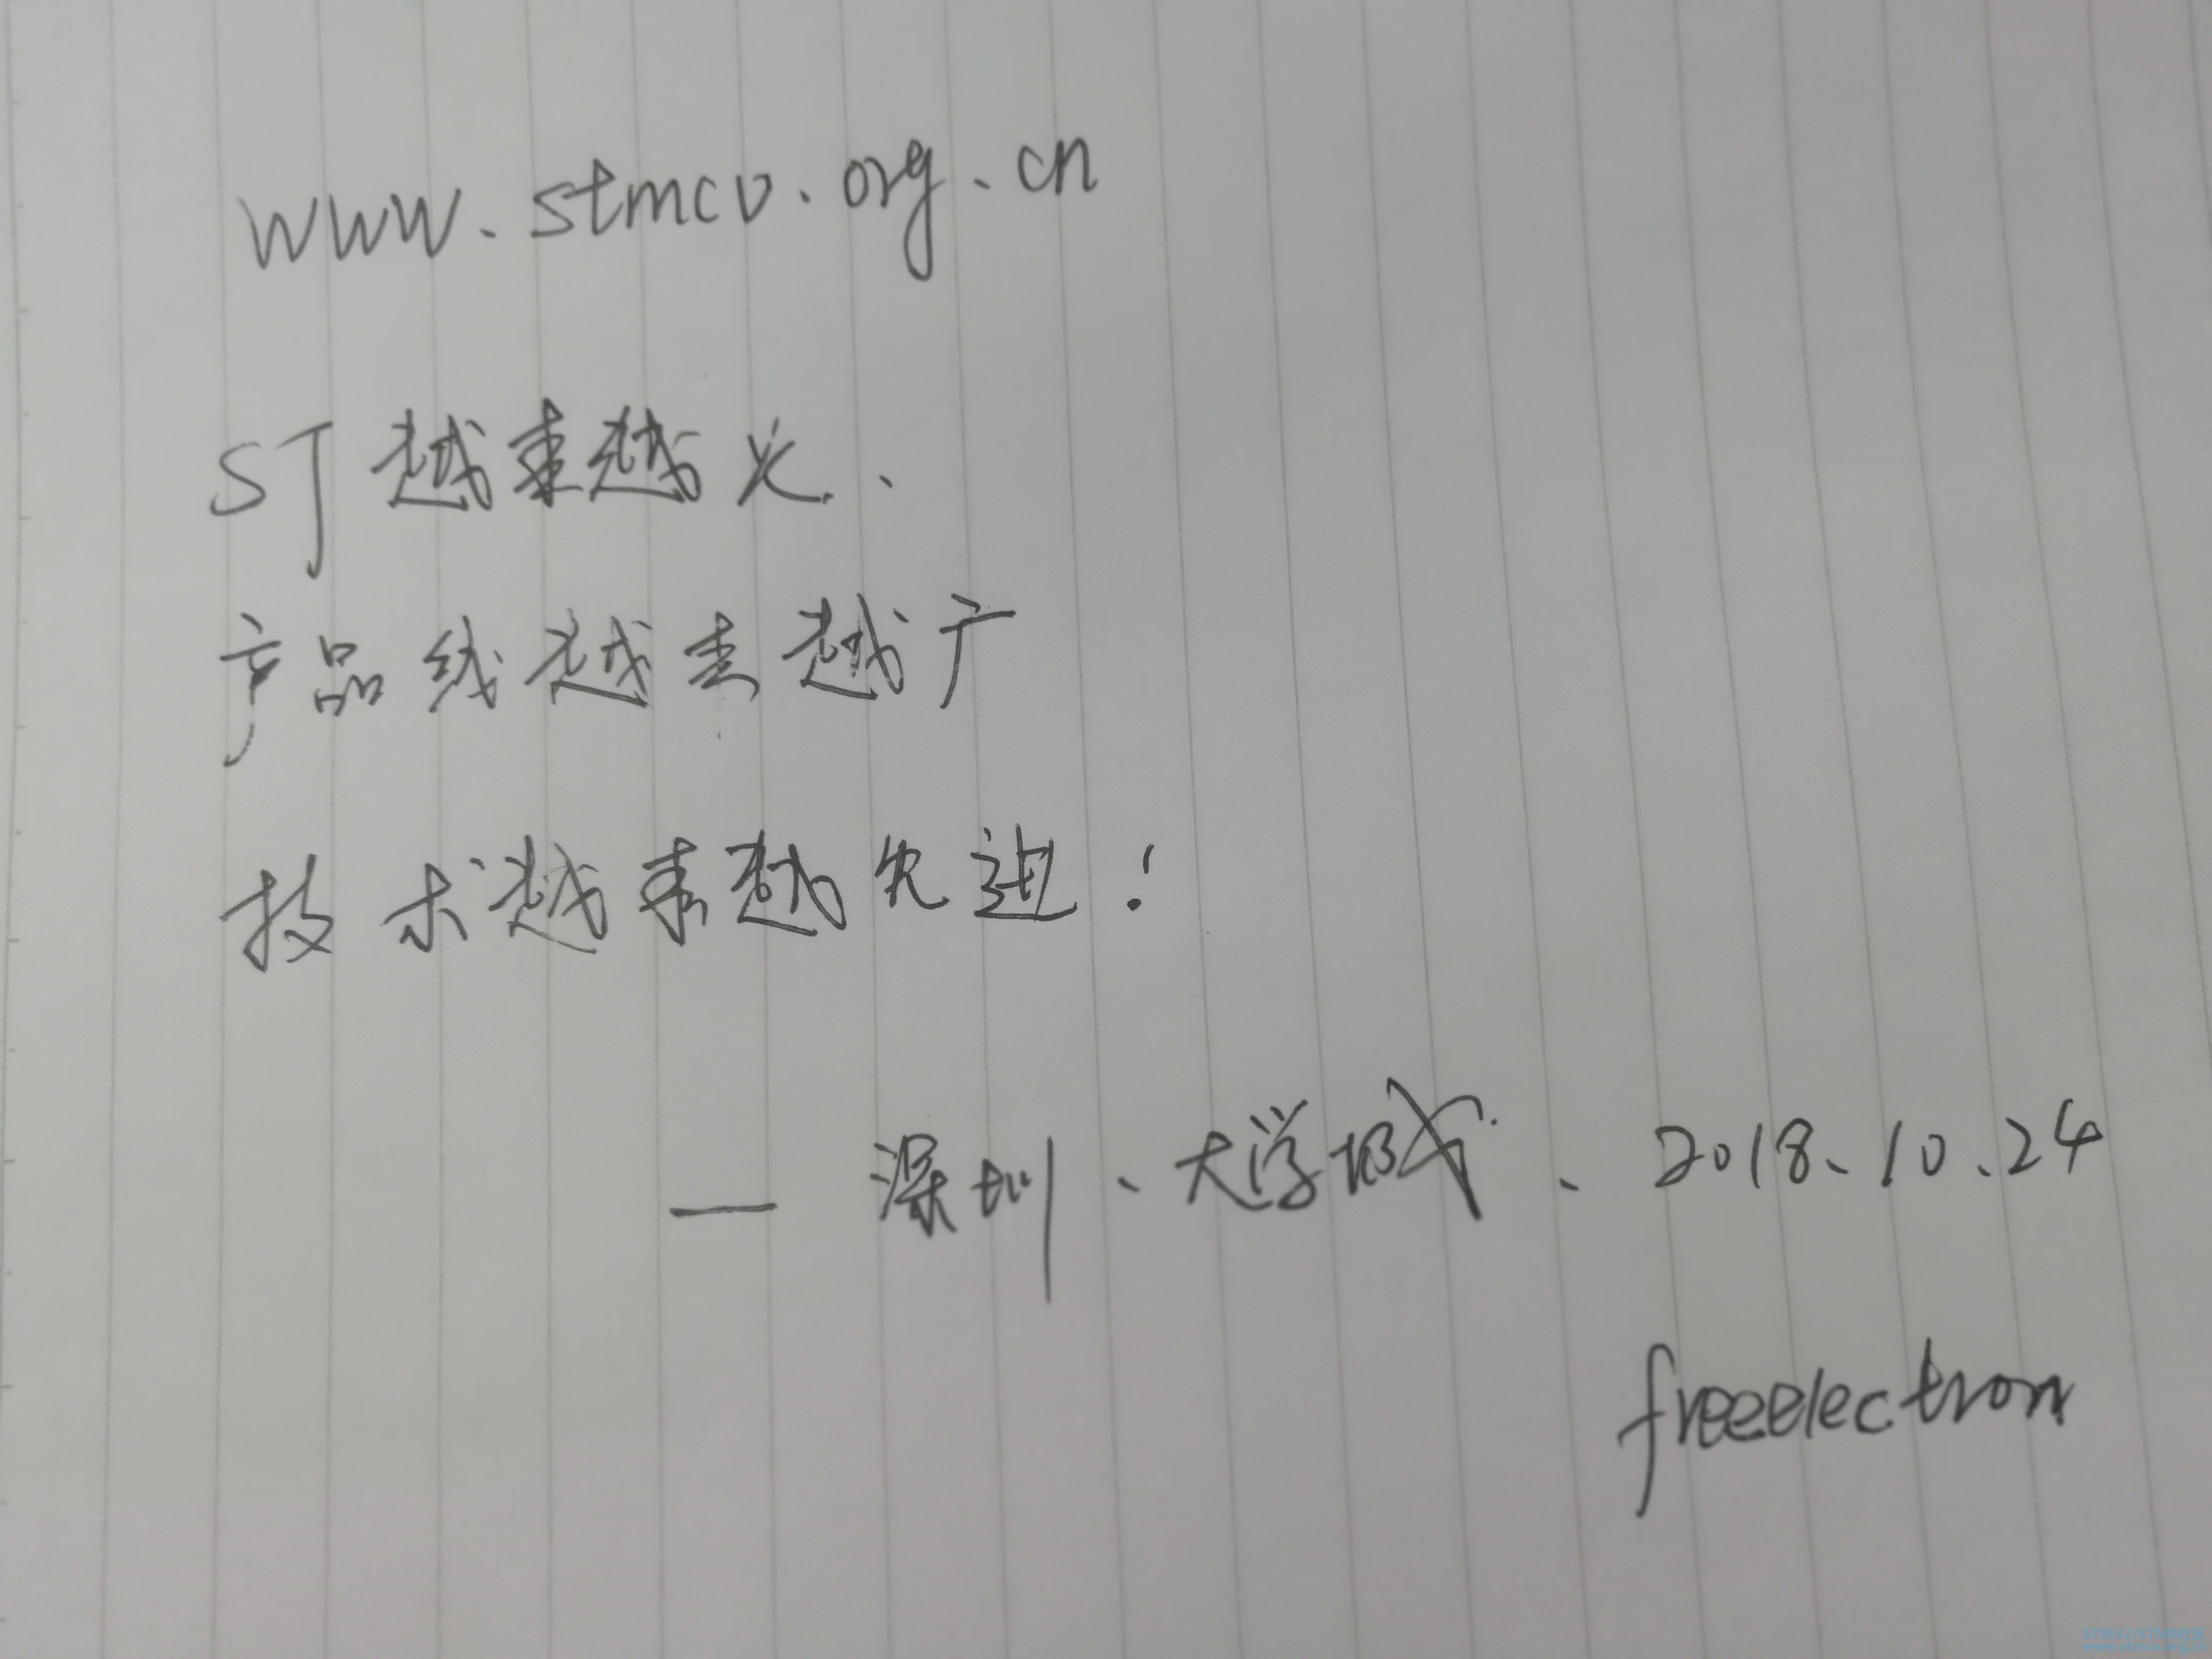 www.stmcu.org.cn
ST越来越火、
产品线越来越广
技术越来越先进！
— 深圳、大学城、2018.10.24
freeelectron
STM32/STM8社区
www.stmcu.org.cn